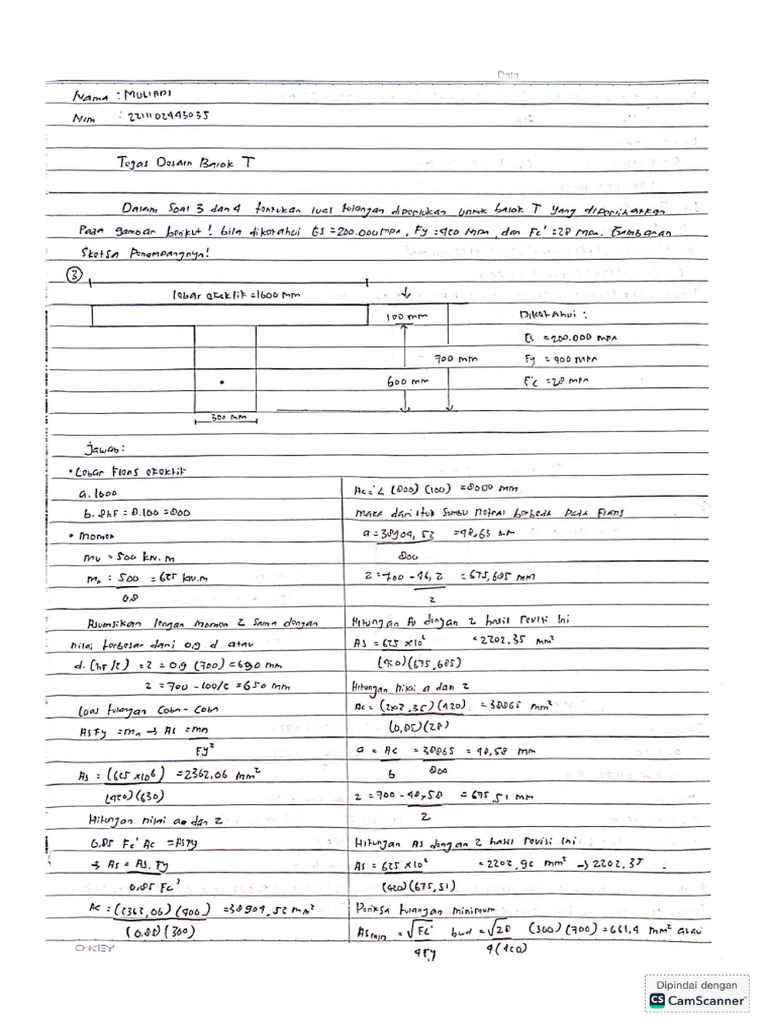 Date
Nama : MULIADI
Nim : 2211102443035
Tugas Desain Balok T
Dalam Soal 3 dan 4 tentukan luas tulangan diperlukan untuk balok T yang diperlihatkan
Pada gambar berikut! bila diketahui Es = 200.000 mpa, Fy = 420 MPa, dan Fc' = 28 MPa. Gambarkan
Sketsa Penampangnya!
3
lebar efektif = 1600 mm
100 mm
700 mm
600 mm
300 mm
Diketahui :
Es = 200.000 mpa
Fy = 400 mpa
F'c = 28 mpa
Jawab:
• Lebar Flens efektif
a. 1600
b. 8hF = 8.100 = 800
• Momen
mu = 500 kN.m
mn : 500 = 625 kN.m
0.8
Asumsikan lengan momen z sama dengan
nilai terbesar dari 0,9 d atau
d. (hf/2) = z = 0.9 (700) = 690 mm
z = 700 - 100/2 = 650 mm
Luas tulangan Coba - Coba
As Fy = mn → As = mn
Fy²
As = (625 x 10⁶) = 2362,06 mm²
(420) (630)
Hitungan nilai a dan z
0.85 Fc' Ac = As Fy
→ As = As. Fy
0.85 Fc'
Ac = (2362,06) (400) = 38904,52 mm²
(0.85) (300)
Ac = (800) (100) = 8000 mm
maka dari itu Sumbu Netral berbeda Pada Flens
a = 38904,52 = 48,63 mm
800
z = 700 - 46,2 = 675,685 mm
2
Hitungan As dengan z hasil revisi Ini
As = 625 x 10⁶ = 2202,35 mm²
(420) (675,685)
Hitungan nilai a dan z
Ac = (2202,35) (420) = 38865 mm²
(0.85) (28)
a = Ac = 38865 = 48,58 mm
b 800
z = 700 - 48,58 = 675,51 mm
2
Hitungan As dengan z hasil revisi Ini
As = 625 x 10⁶ = 2202,96 mm² → 2202,35
(420) (675,51)
Periksa tulangan minimum
As min = √Fc' bwd = √28 (300) (700) = 661,4 mm² atau
4Fy 4 (420)
O-KEY
Dipindai dengan
CS CamScanner